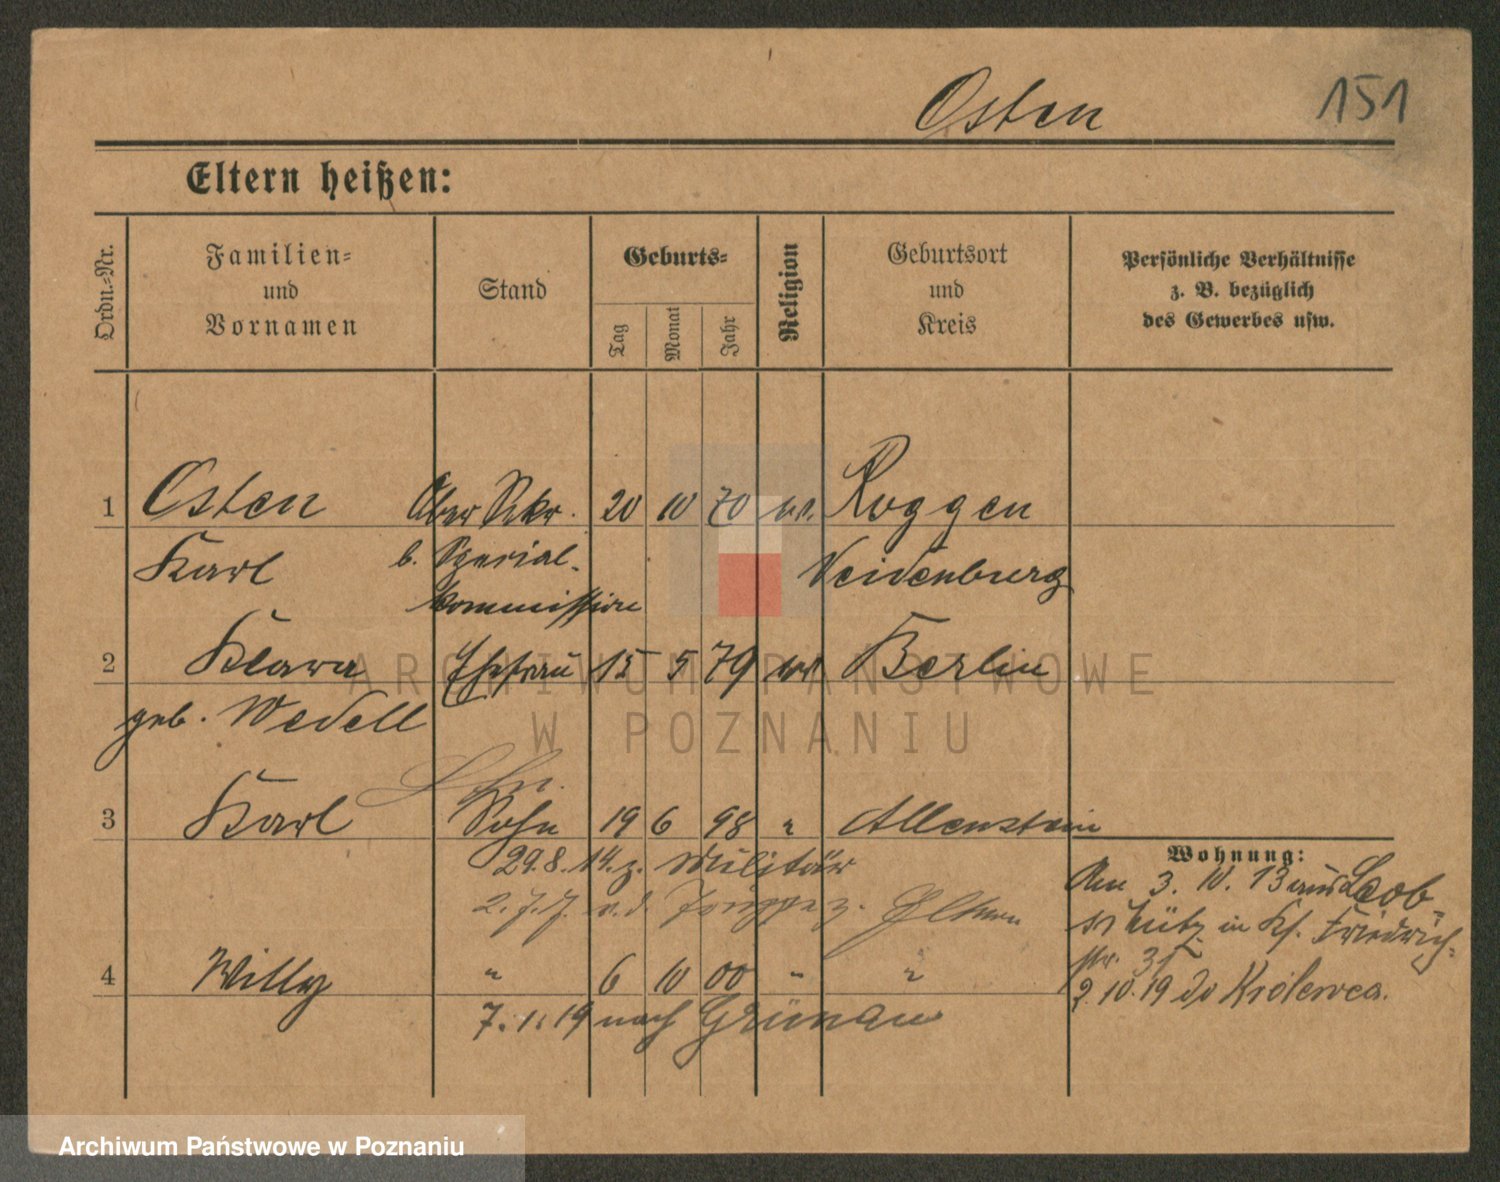 Osten 151
Eltern heißen:
Ordn.-Nr.
Familien-
und
Vornamen
Stand
Geburts-
Tag
Monat
Jahr
Religion
Geburtsort
und
Kreis
Persönliche Verhältnisse
z. B. bezüglich
des Gewerbes usw.
1 Osten Ober Sekr. 20 10 70 ev. Roggen
Karl b. Spezial- Neidenburg
kommission
2 Klara Ehefrau 15 5 79 ev. Berlin
geb. Wedell
3 Karl Sohn 19 6 98 " Allenstein
29.8.14. z. Militär
Wohnung:
Am 3. 10. 13 aus Leob
schütz in Friedrich-
str. 35
4 Willy " 6 10 00 " "
2.10.19
7.1.19 nach Grünau
ARCHIWUM PAŃSTWOWE
W POZNANIU
Archiwum Państwowe w Poznaniu